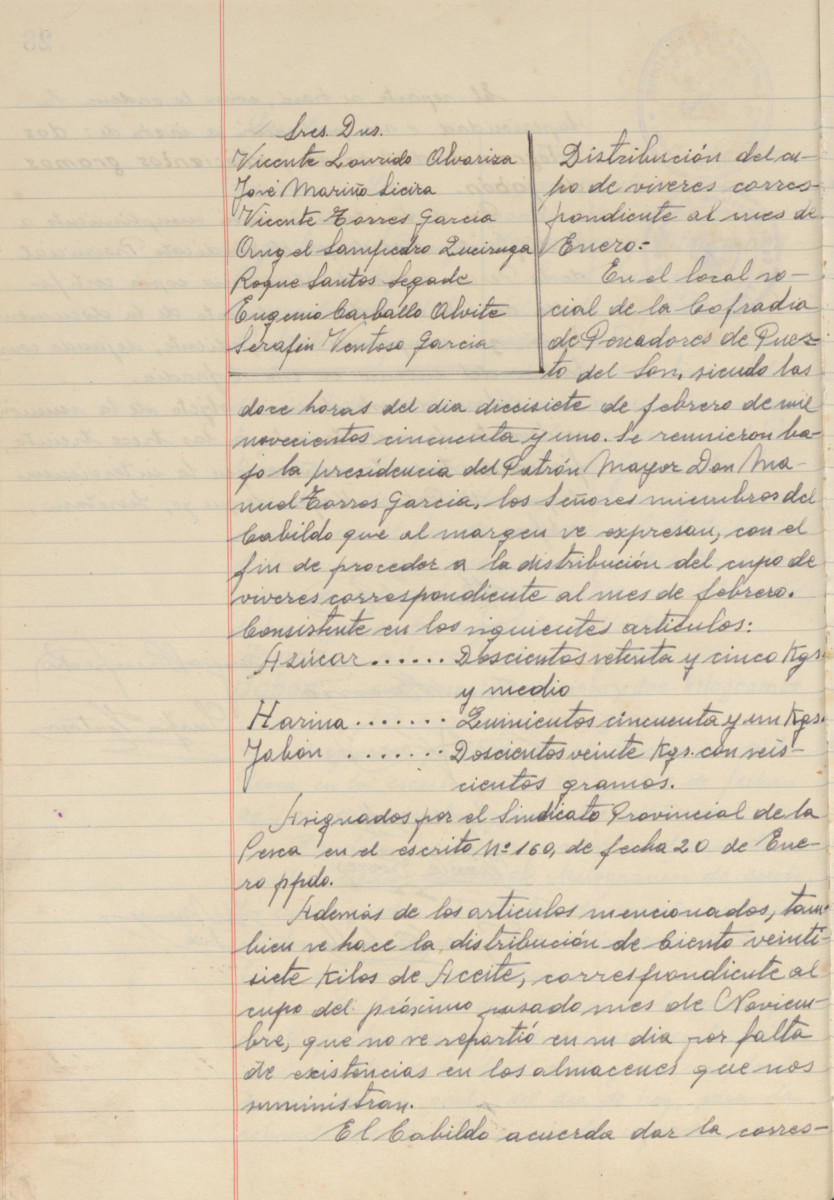 Sres. Dns.
Vicente Lourido Alvariza
José Mariño Sieira
Vicente Torres Garcia
Angel Sampedro Queiruga
Roque Santos Segade
Eugenio Carballo Alvite
Serafin Ventoso Garcia
Distribución del cu-
po de viveres corres-
pondiente al mes de
Enero.-
En el local so-
cial de la Cofradia
de Pescadores de Puer-
to del Son, siendo las
doce horas del dia diecisiete de febrero de mil
novecientos cincuenta y uno. Se reunieron ba-
jo la presidencia del Patrón Mayor Don Ma-
nuel Torres Garcia, los Señores miembros del
Cabildo que al margen se expresan, con el
fin de proceder a la distribución del cupo de
viveres correspondiente al mes de febrero.
Consistente en los siguientes articulos:
Azúcar...... Doscientos setenta y cinco Kgs.
y medio
Harina ....... Quinientos cincuenta y un Kgs.
Jabón ....... Doscientos veinte Kgs. con seis-
cientos gramos.
Asignados por el Sindicato Provincial de la
Pesca en el escrito Nº 160, de fecha 20 de Ene-
ro ppdo.
Además de los articulos mencionados, tam-
bien se hace la distribución de Ciento veinti-
siete Kilos de Aceite, correspondiente al
cupo del próximo pasado mes de Noviem-
bre, que no se repartió en su dia por falta
de existencias en los almacenes que nos
suministran.
El Cabildo acuerda dar la corres-